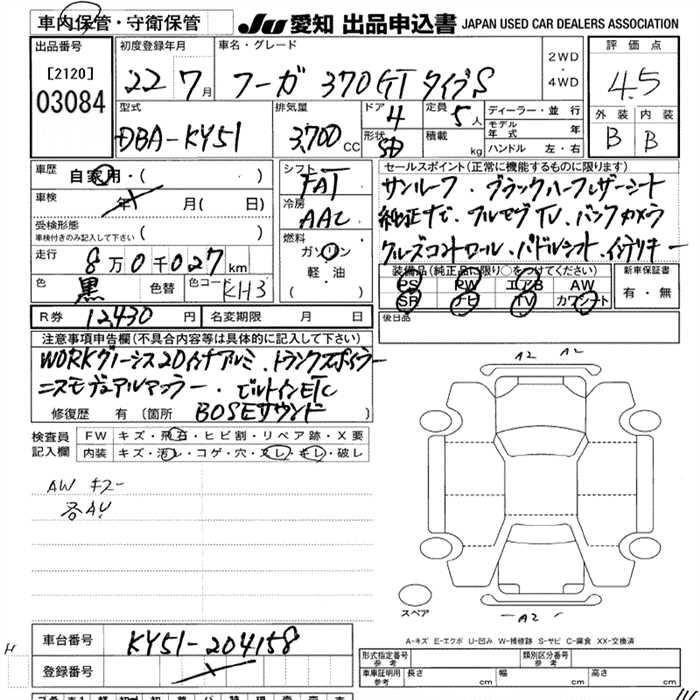 車内保管・守衛保管
JU 愛知 出品申込書 JAPAN USED CAR DEALERS ASSOCIATION
出品番号
[2120]
03084
初度登録年月
22 7月
車名・グレード
フーガ 370GT タイプS
2WD
・
4WD
評価点
4.5
外装 内装
B B
型式
DBA-KY51
排気量
3,700 CC
ドア
4
形状
SD
定員
5人
積載
kg
ディーラー・並行
モデル年式 年
ハンドル 左・右
車歴
自家用・( )
車検
年 月( 日)
受検形態
車検付きのみ記入して下さい ( )
走行
8万0千027km
色
黒
色替
色コード
KH3
シフト
FAT
冷房
AAC
燃料
ガソリン
軽油
( )
セールスポイント(正常に機能するものに限ります)
サンルーフ・ブラックハーフレザーシート
純正ナビ・フルセグTV・バックカメラ
クルーズコントロール・パドルシフト・インテリキー
装備品(純正品に限り○をつけてください)
PS PW エアB AW
SR ナビ TV カワシート
新車保証書
有・無
R券 12,430円
名変期限 月 日
後日品
注意事項申告欄(不具合内容等は具体的に記入して下さい)
WORKグノーシス20インチアルミ・トランクスポイラー
ニスモデュアルマフラー・ビルトインETC
BOSEサウンド
修復歴 有(箇所 )
検査員
記入欄
FW キズ・飛石・ヒビ割・リペア跡・X要
内装 キズ・汚レ・コゲ・穴・スレ・キレ・破レ
AW キズー
各AU
A2 A2
スペア
A2
A-キズ E-エクボ U-凹み W-補修跡 S-サビ C-腐食 XX-交換済
車台番号 KY51-204158
登録番号
形式指定番号
参考
類別区分番号
参考
車庫証明用
参考
長さ cm 幅 cm 高さ cm